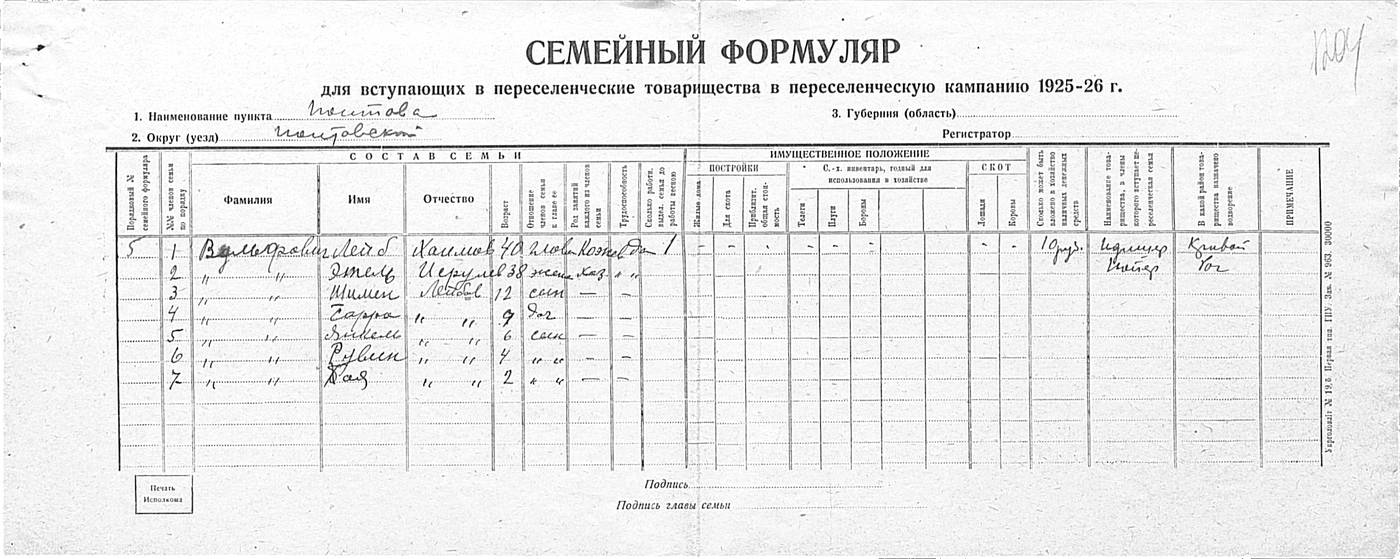 1204
СЕМЕЙНЫЙ ФОРМУЛЯР
для вступающих в переселенческие товарищества в переселенческую кампанию 1925-26 г.
1. Наименование пункта
3. Губерния (область)
2. Округ (уезд)
Регистратор
СОСТАВ СЕМЬИ
ИМУЩЕСТВЕННОЕ ПОЛОЖЕНИЕ
Порядковый № семейного формуляра
№№ членов семьи по порядку
Фамилия
Имя
Отчество
Возраст
Отношение членов семьи к главе ее
Род занятий каждого из членов семьи
Трудоспособность
Сколько работн. выдел. семья до работы весною
ПОСТРОЙКИ
Жилые дома
Для скота
Приблизит. общая стоимость
С.-х. инвентарь, годный для использования в хозяйстве
Телеги
Плуги
Бороны
СКОТ
Лошади
Коровы
Сколько может быть вложено в хозяйство наличных денежных средств
Наименование товарищества, в члены которого вступает переселенческая семья
В какой район товарищества назначено водворение
ПРИМЕЧАНИЕ
5 1 Вульфович Лейб Хаимов 40 глова да 1 - - - - - - - - 10 руб. Кривой
2 " " Исрулев 38 жена хоз " " Рог
3 " " Шимен Лейбов 12 сын — —
4 " " Сарра " " 9 доч — —
5 " " Янкель " " 6 сын — —
6 " " Рувин " " 4 " " — —
7 " " " " 2 " " — —
Печать Исполкома
Подпись
Подпись главы семьи
№ 963. 30000